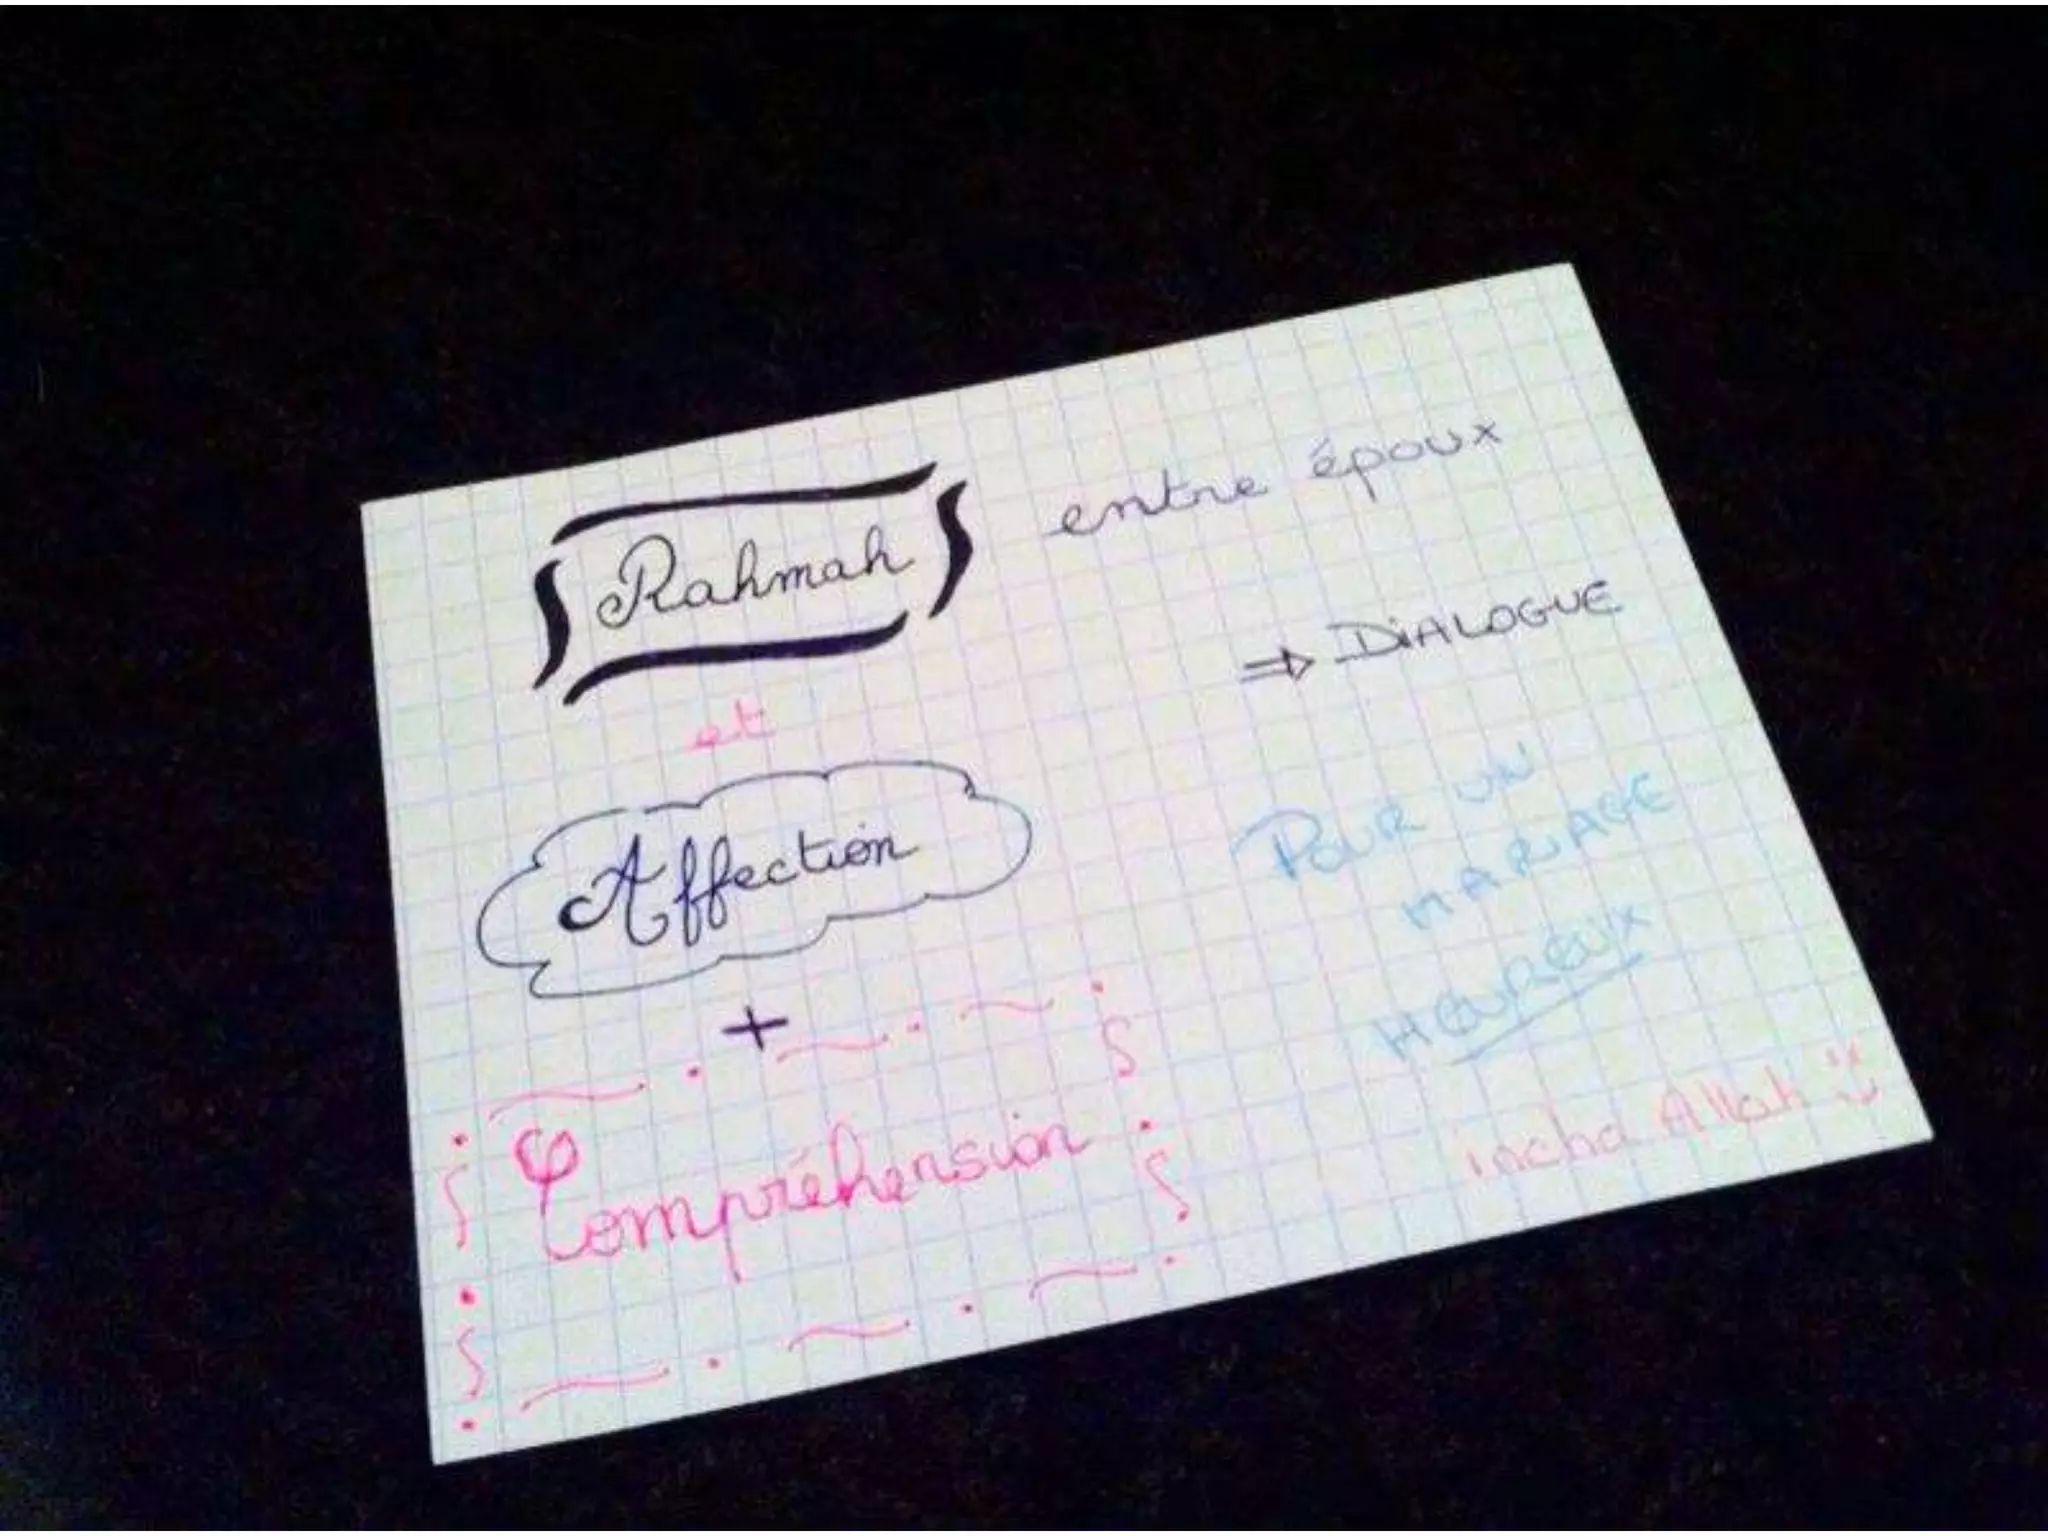 Rahmah entre époux
et
⇒ DIALOGUE
Affection
+
Compréhension
POUR UN
MARIAGE
HEUREUX
incha Allah